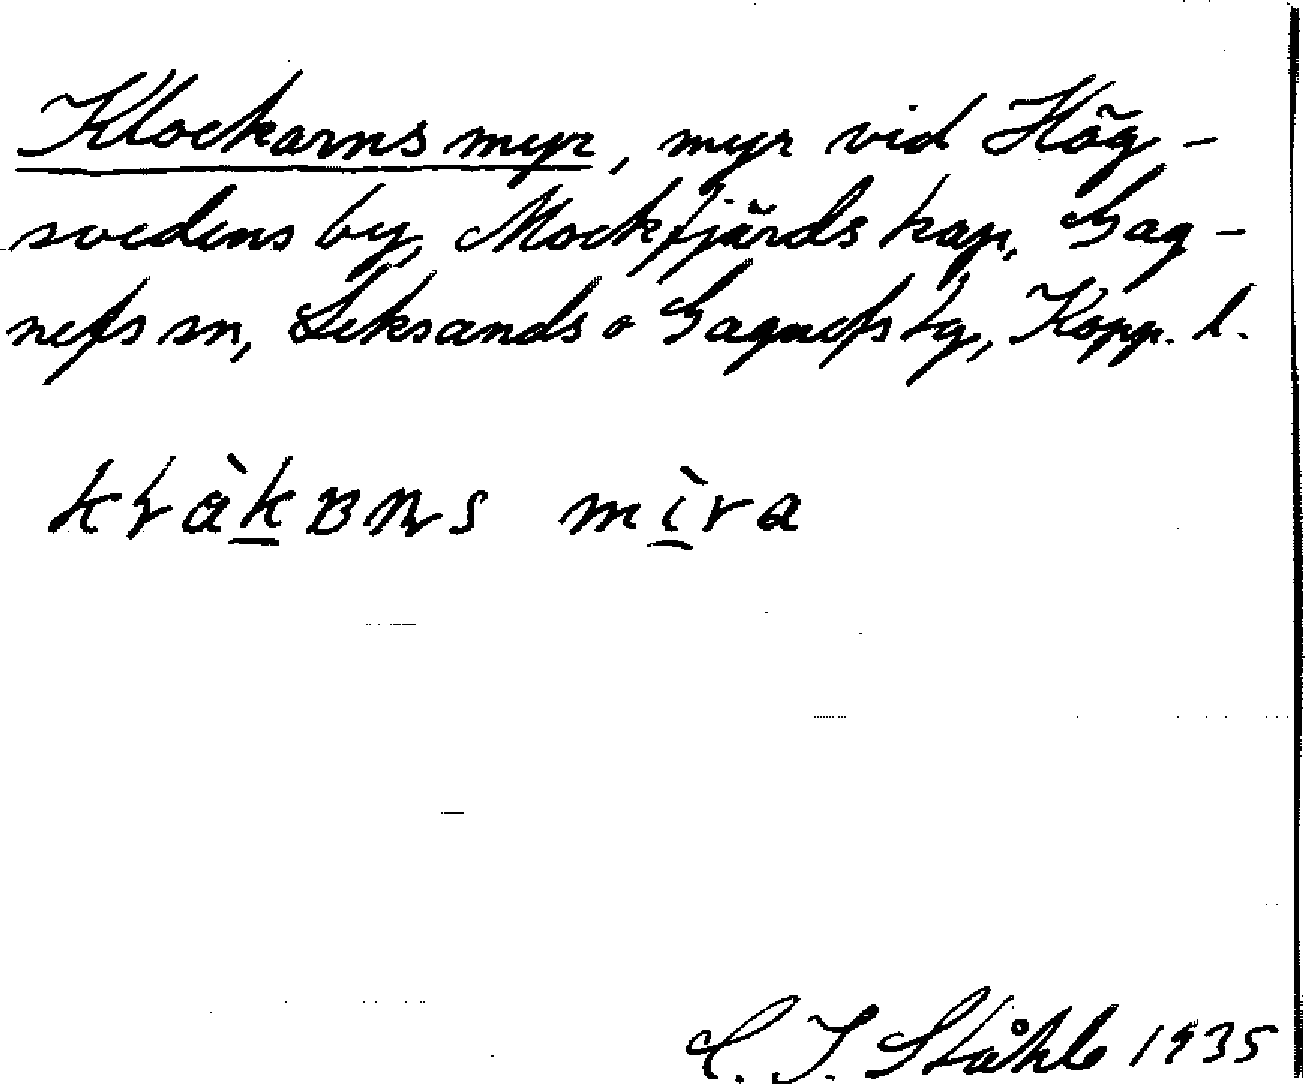 Klockarns myr, myr vid Hög-
svedens by, Mockfjärds kap, Gag-
nefs sn, Leksands o Gagnefs tg, Kopp. l.
mìra
C. I. Ståhle 1935